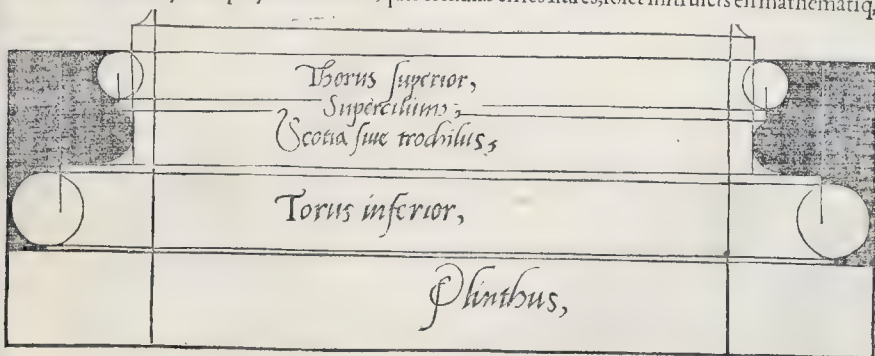 instruictz en mathematiq,
Thorus superior,
Supercilium,
Scotia siue trochilus,
Torus inferior,
Plinthus,